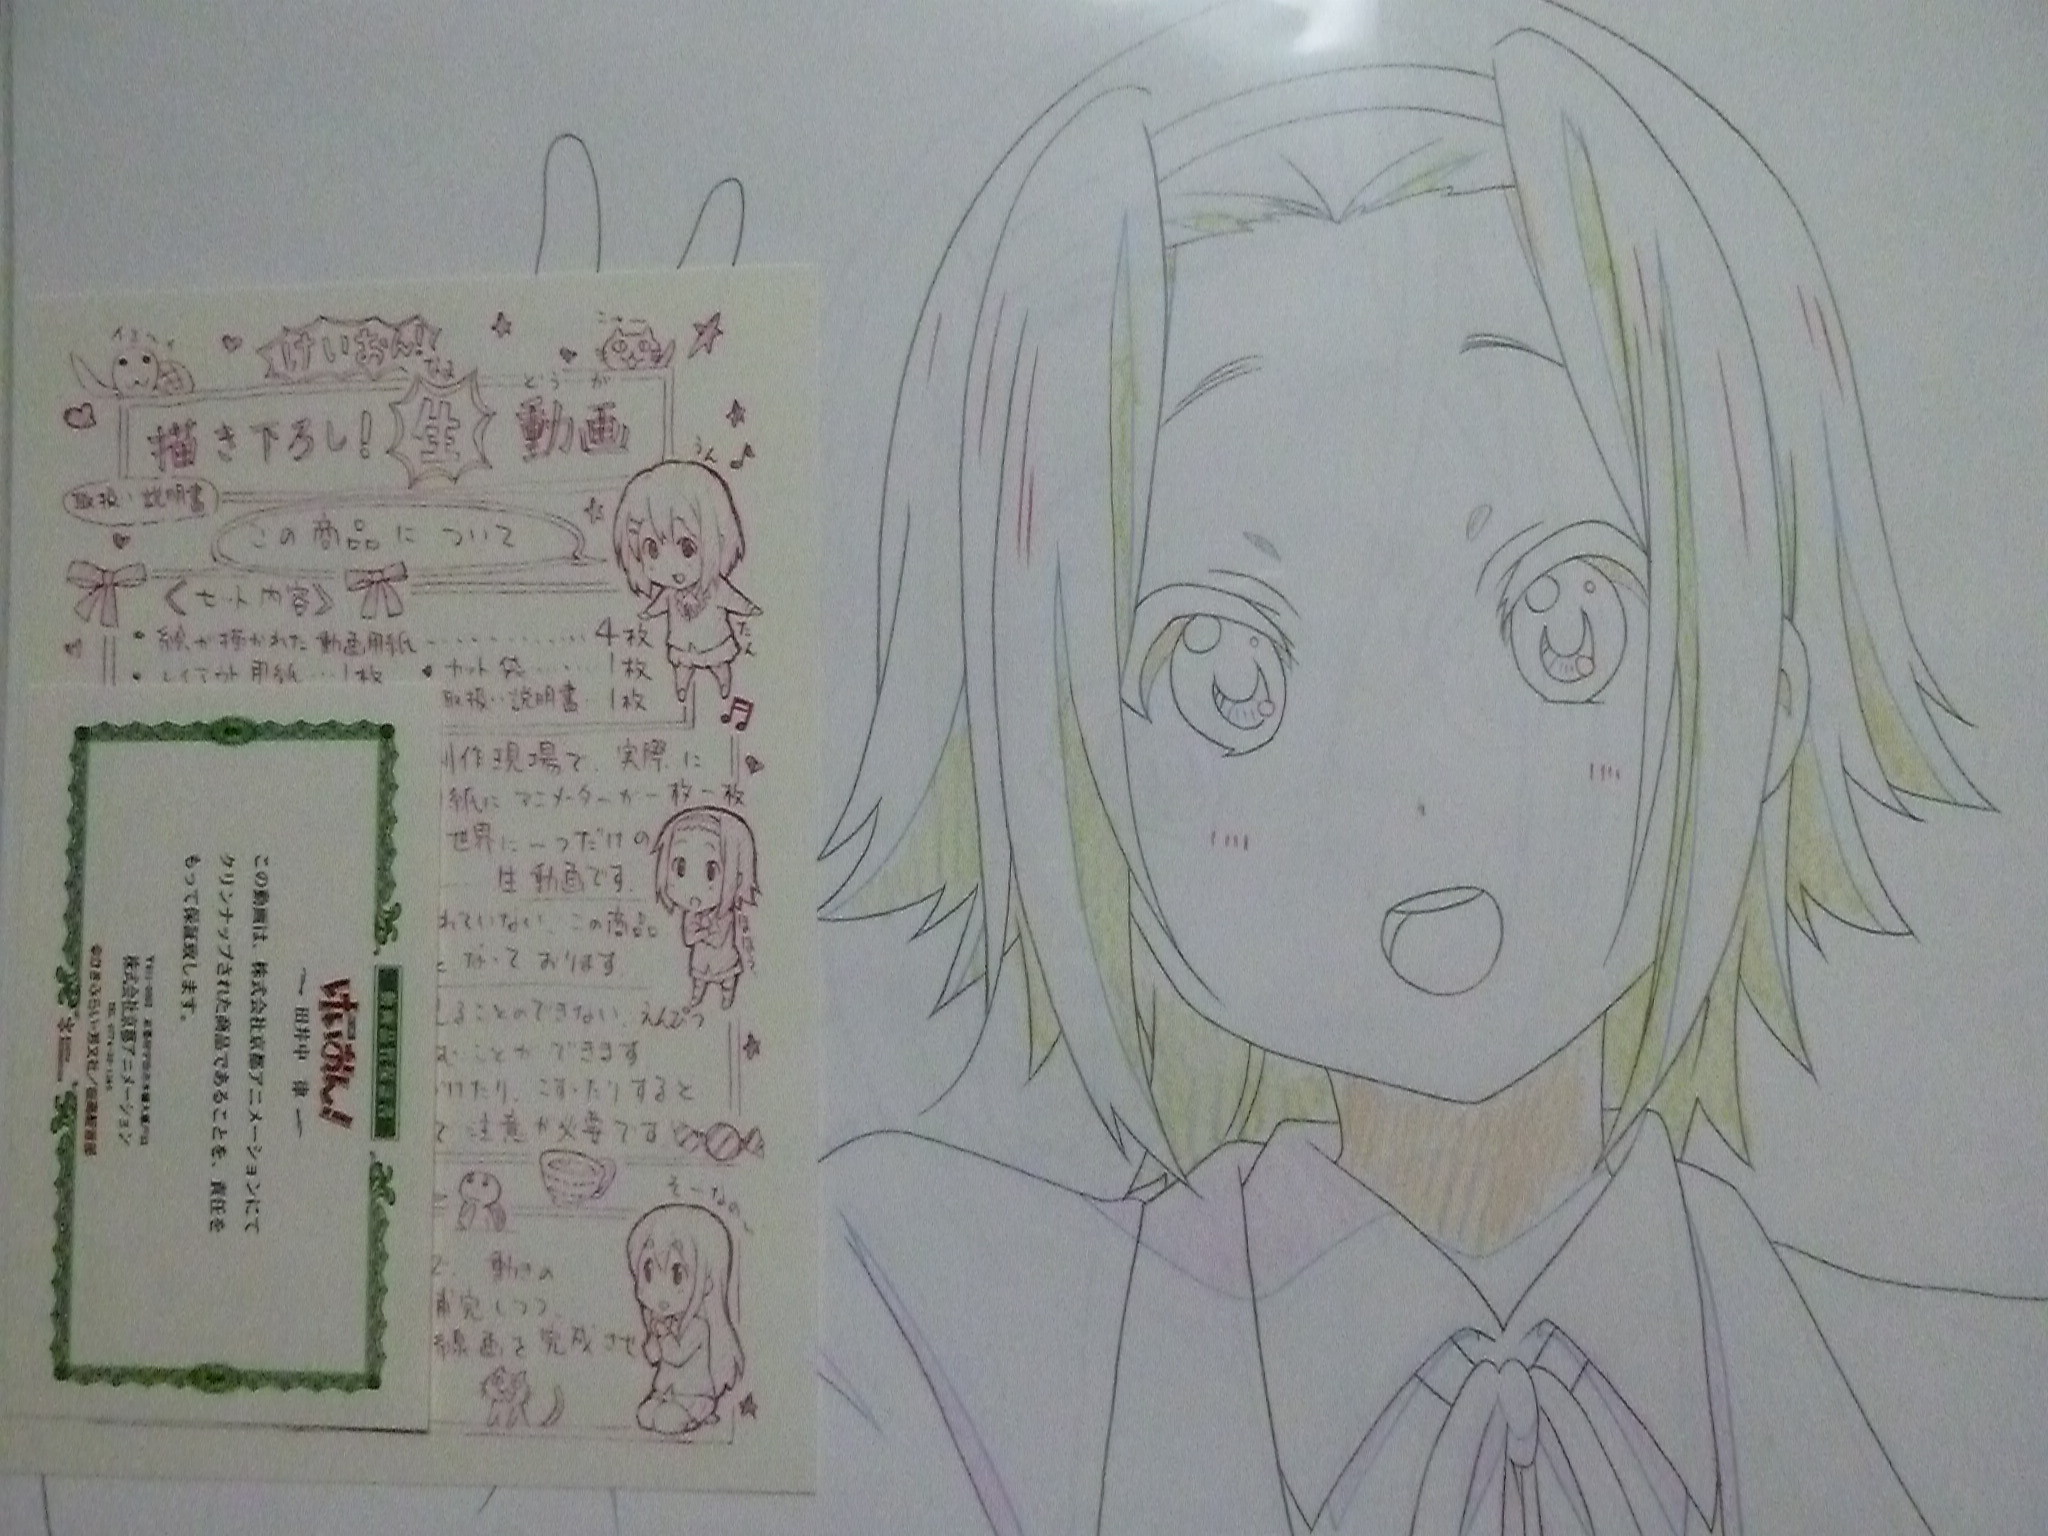 けいおん!
なま
どうが
描き下ろし!生動画
取扱い説明書
うん
この商品について
《セット内容》
・絵が描かれた動画用紙 4枚
たん
・レイアウト用紙…1枚 ・カット袋……1枚
取扱い説明書…1枚
作現場で、実際に
紙にアニメーターが一枚一枚
世界に一つだけの
生動画です。
れていない、この商品
となっております。
ることのできない、えんぴつ
むことができます
けたり、こすったりすると
注意が必要です
そーなのし
で、動きの
補完しつつ、
線画を完成させ
けいおん!
― 田井中 律 ―
この動画は、株式会社京都アニメーションにて
クリンナップされた商品であることを、責任を
もって保証致します。
株式会社京都アニメーション
©かきふらい・芳文社/桜高軽音部